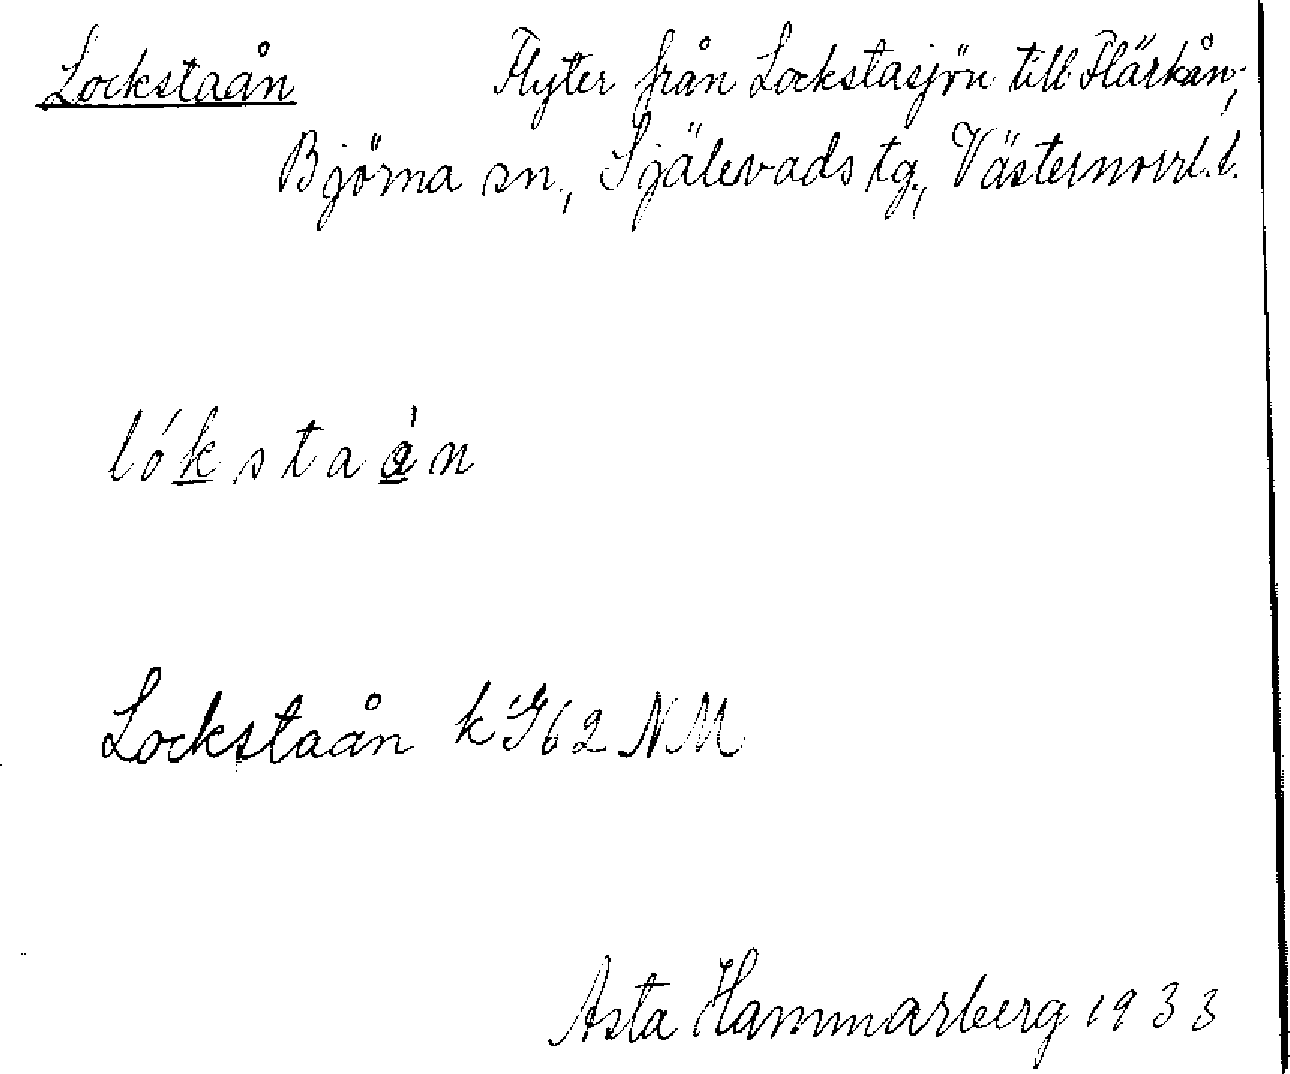 Lockstaån Flyter från Lockstasjön till Flärkån,
Björna sn, Själevads tg., Västernorrl. l.
lókstaàn
Lockstaån k G62 NM
Asta Hammarberg 1933